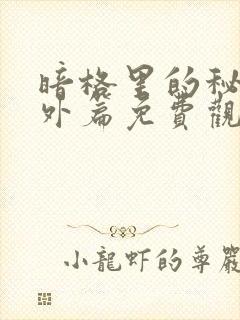 暗格里的秘
外篇免費觀
小龍虾的尊嚴